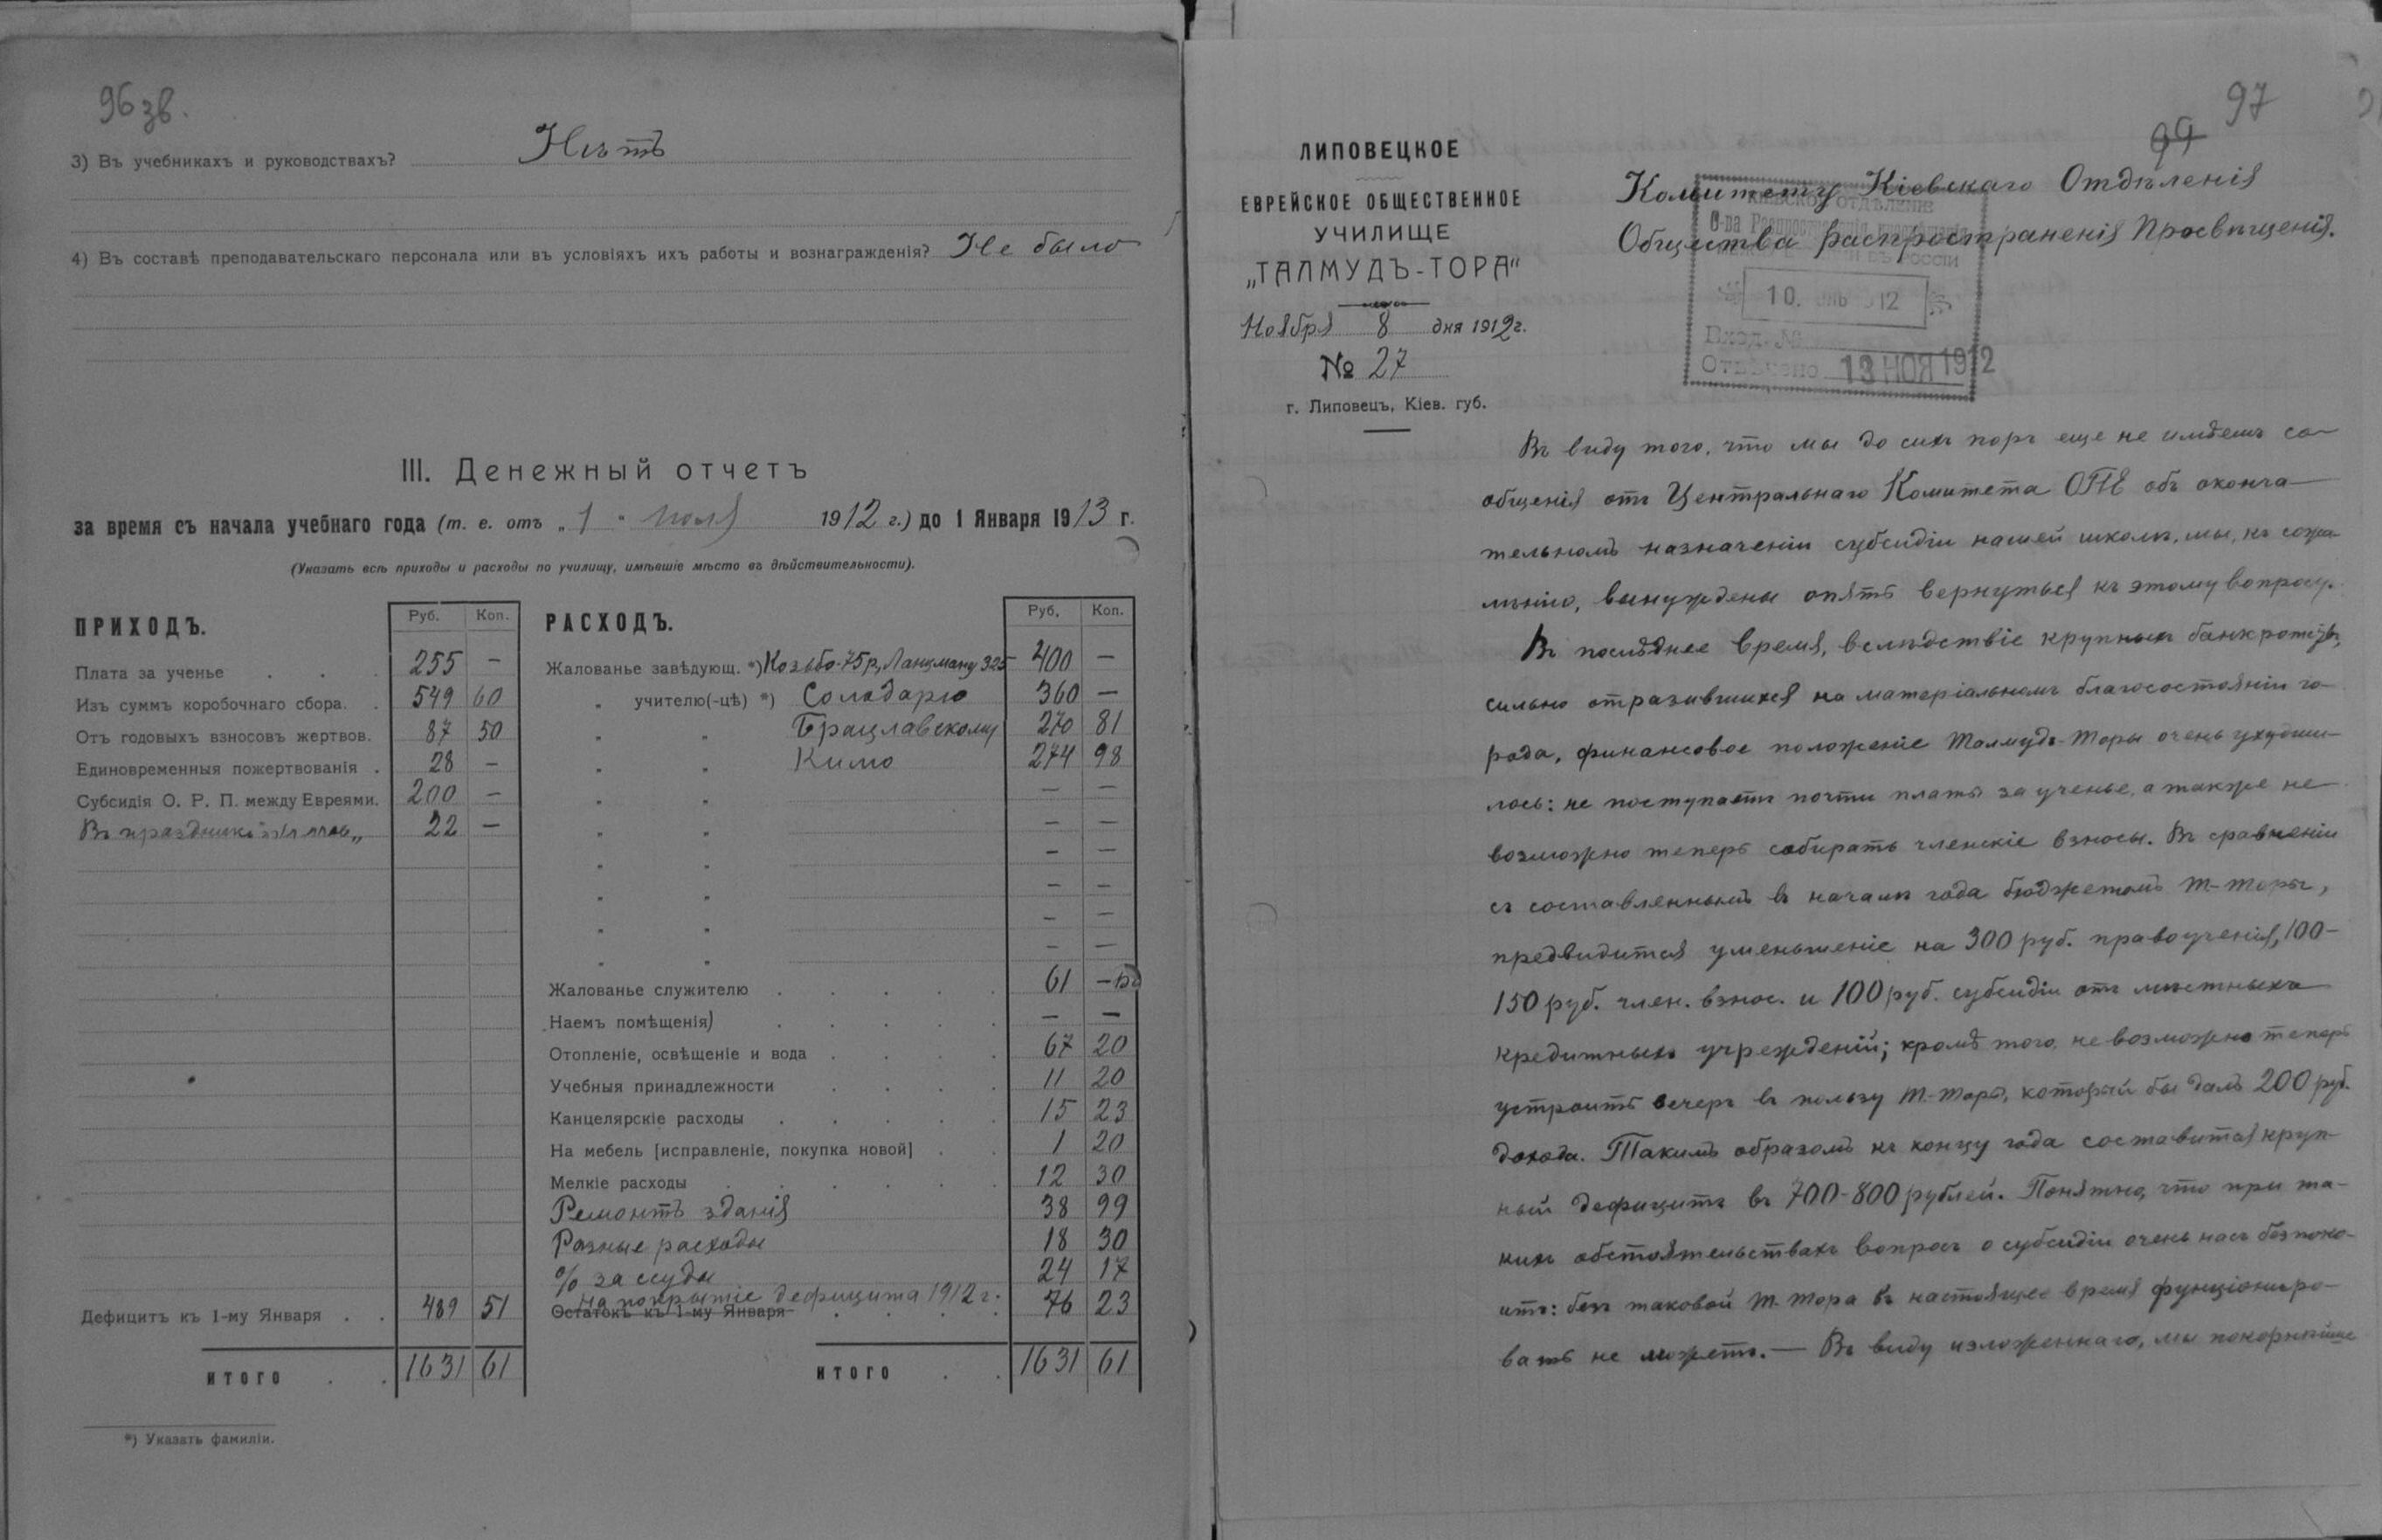 96 зв.
3) Въ учебникахъ и руководствахъ? Нѣтъ
4) Въ составѣ преподавательскаго персонала или въ условіяхъ ихъ работы и вознагражденія? Не было
III. Денежный отчетъ
за время съ начала учебнаго года (т. е. отъ „1" 1912 г.) до 1 Января 1913 г.
(Указать всѣ приходы и расходы по училищу, имѣвшіе мѣсто въ дѣйствительности).
ПРИХОДЪ. Руб. Коп.
Плата за ученье . . . 255 —
Изъ суммъ коробочнаго сбора. . 549 60
Отъ годовыхъ взносовъ жертвов. 87 50
Единовременныя пожертвованія . 28 —
Субсидія О. Р. П. между Евреями. 200 —
Въ праздникъ 22 —
Дефицитъ къ 1-му Января . . 489 51
ИТОГО . . 1631 61
РАСХОДЪ. Руб. Коп.
Жалованье завѣдующ. *) 75 р, Ланцману 325 400 —
„ учителю(-цѣ) *) Солодарю 360 —
„ „ Брацлавскому 270 81
„ „ Кимо 274 98
„ „ — —
„ „ — —
„ „ — —
„ „ — —
„ „ — —
„ „ — —
Жалованье служителю . . . . . 61 —
Наемъ помѣщенія) . . . . . — —
Отопленіе, освѣщеніе и вода . . . . 67 20
Учебныя принадлежности . . . . 11 20
Канцелярскіе расходы . . . . . 15 23
На мебель [исправленіе, покупка новой] . . 1 20
Мелкіе расходы . . . . . . 12 30
Ремонтъ зданія 38 99
Разные расходы 18 30
% за ссуды 24 17
на покрытіе дефицита 1912 г.
Остатокъ къ 1-му Января . . . . 76 23
ИТОГО . . 1631 61
*) Указать фамиліи.
97
99
ЛИПОВЕЦКОЕ
ЕВРЕЙСКОЕ ОБЩЕСТВЕННОЕ
УЧИЛИЩЕ
„ТАЛМУДЪ-ТОРА"
Ноября 8 дня 1912 г.
№ 27
г. Липовецъ, Кіев. губ.
Комитету Кіевскаго Отдѣленія
Общества распространенія Просвѣщенія.
КІЕВСКОЕ ОТДѢЛЕНІЕ
О-ва Распространенія просвѣщенія
ВЪ РОССІИ
10. 12
Вход. №
Отвѣчено 13 НОЯ 1912
Въ виду того, что мы до сихъ поръ еще не имѣемъ со-
общенія отъ Центральнаго Комитета ОПЕ объ оконча-
тельномъ назначеніи субсидіи нашей школѣ, мы, къ сожа-
лѣнію, вынуждены опять вернуться къ этому вопросу.
Въ послѣднее время, вслѣдствіе крупныхъ банкротствъ,
сильно отразившихся на матеріальномъ благосостояніи го-
рода, финансовое положеніе Талмудъ-Торы очень ухудши-
лось: не поступаетъ почти платы за ученье, а также не
возможно теперь собирать членскіе взносы. Въ сравненіи
съ составленнымъ въ началѣ года бюджетомъ Т-Торы,
предвидится уменьшеніе на 300 руб. правоученія, 100-
150 руб. член. взнос. и 100 руб. субсидіи отъ мѣстныхъ
кредитныхъ учрежденій; кромѣ того, не возможно теперь
устроить вечеръ въ пользу Т.-Торы, который бы далъ 200 руб.
дохода. Такимъ образомъ къ концу года составится круп-
ный дефицитъ въ 700-800 рублей. Понятно, что при та-
кихъ обстоятельствахъ вопросъ о субсидіи очень насъ безпоко-
итъ: безъ таковой Т-Тора въ настоящее время функціониро-
вать не можетъ. — Въ виду изложеннаго, мы покорнѣйше